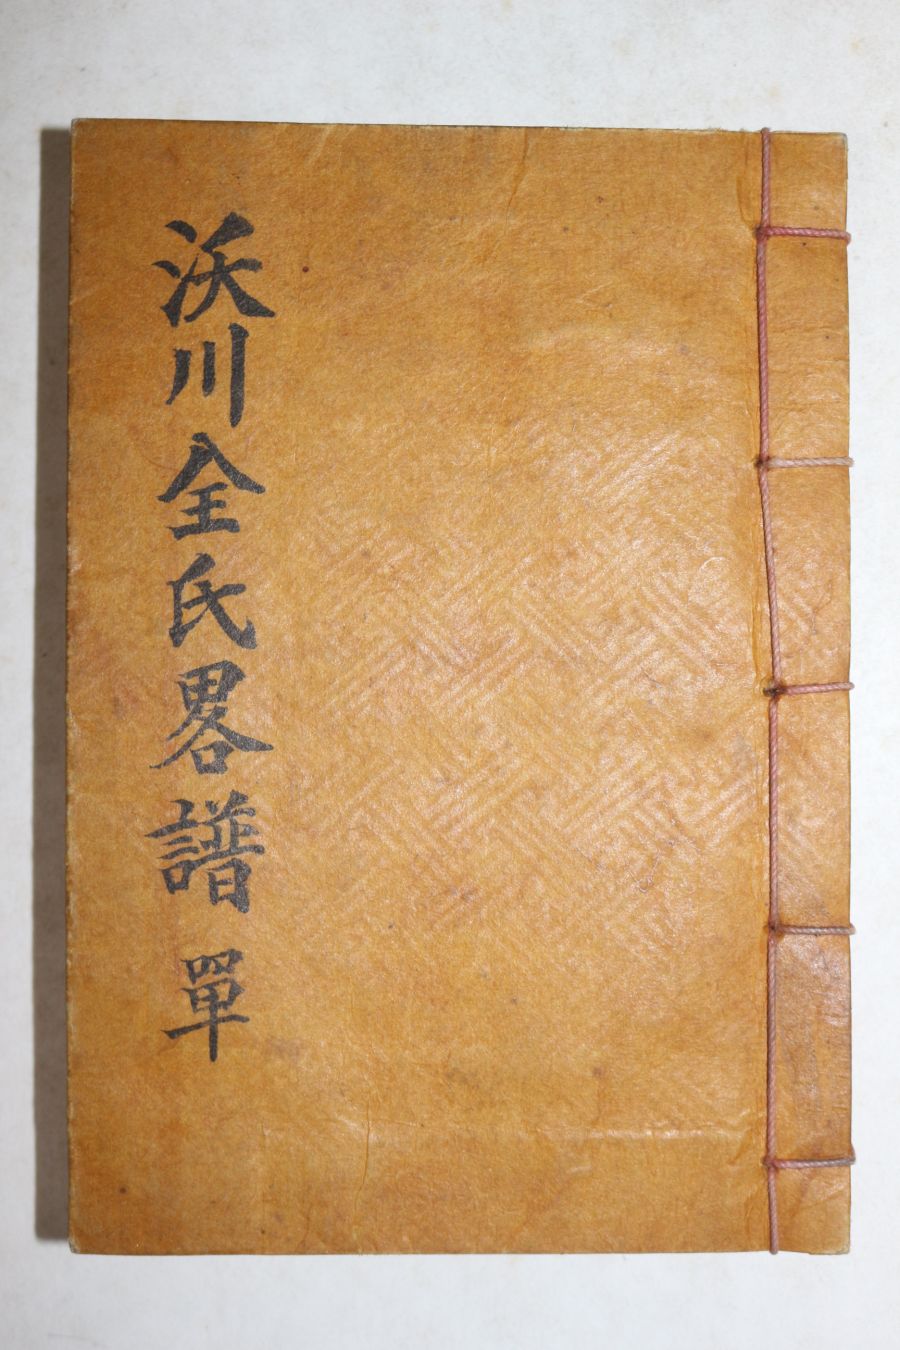 沃川全氏畧譜 單